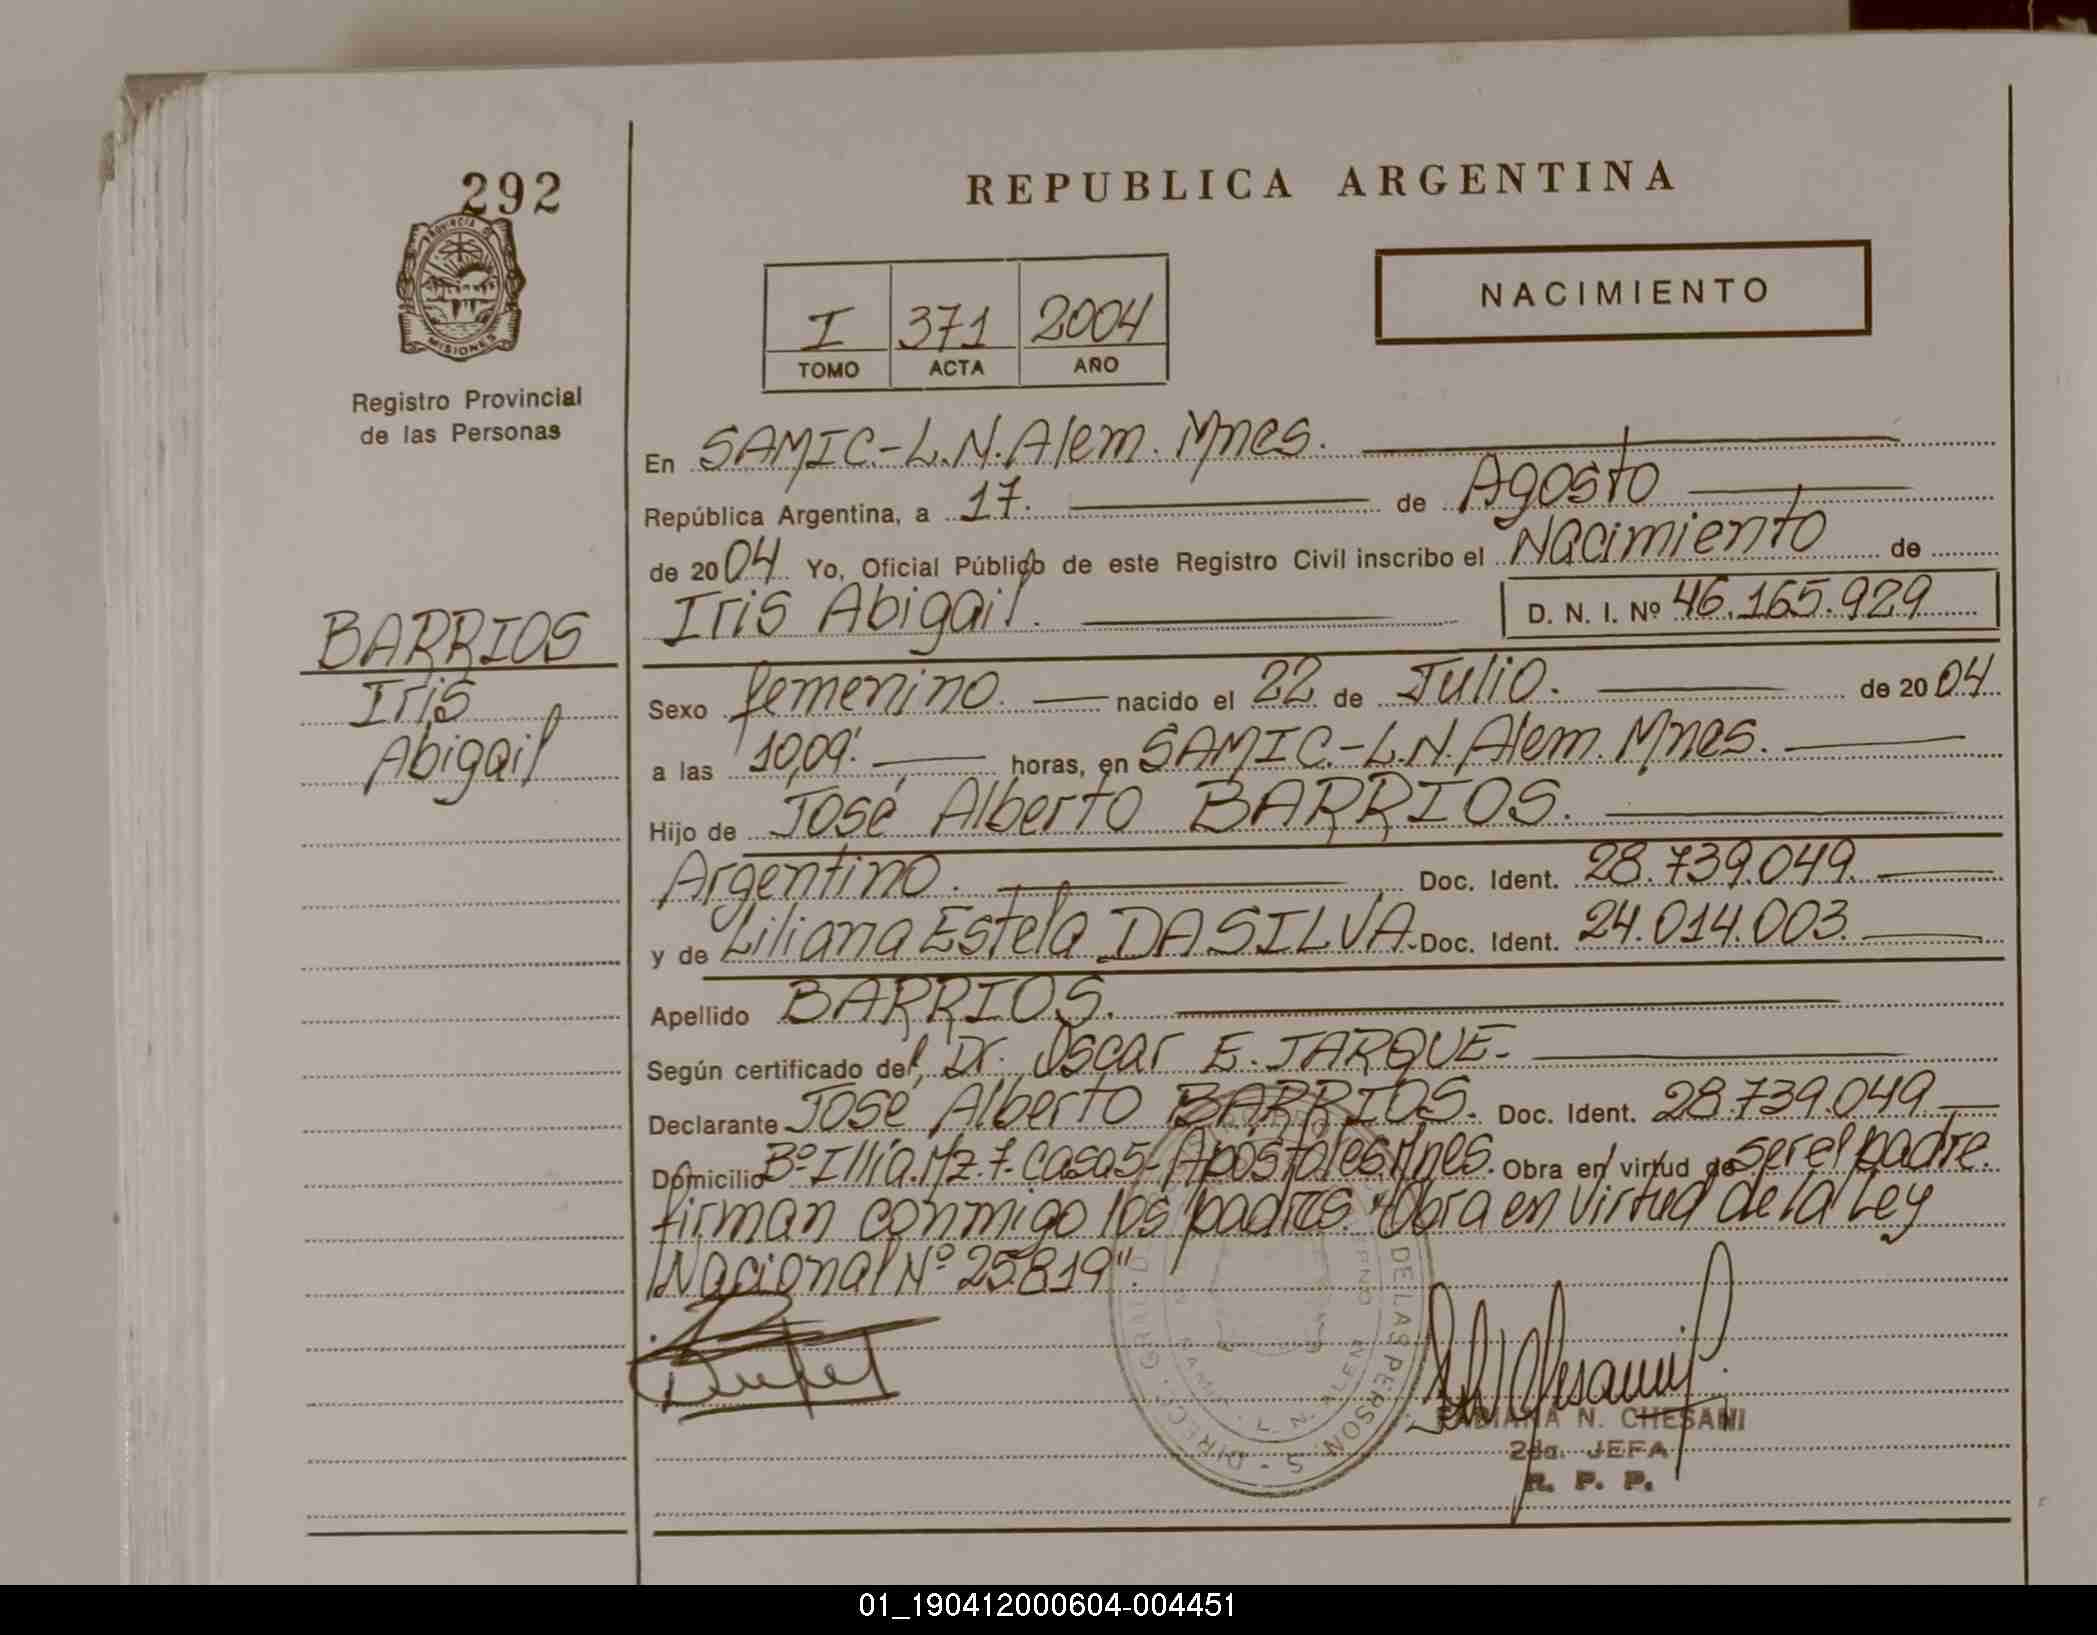 292
PROVINCIA DE
MISIONES
Registro Provincial
de las Personas
BARRIOS
Iris
Abigail
REPUBLICA ARGENTINA
NACIMIENTO
I 371 2004
TOMO ACTA AÑO
En SAMIC.-L.N.Alem. Mnes.
República Argentina, a 17. de Agosto
de 2004 Yo, Oficial Público de este Registro Civil inscribo el Nacimiento de
Iris Abigail. D. N. I. Nº 46.165.929
Sexo femenino. nacido el 22 de Julio. de 2004
a las 10,09'. horas, en SAMIC.-L.N.Alem. Mnes.
Hijo de José Alberto BARRIOS.
Argentino. Doc. Ident. 28.739.049.
y de Liliana Estela DASILVA.- Doc. Ident. 24.014.003.
Apellido BARRIOS.
Según certificado del, Dr. Oscar E. JARQUE.-
Declarante José Alberto BARRIOS. Doc. Ident. 28.739.049
Domicilio Bº Illia.Mz.7.Casa5-Apóstoles.Mnes. Obra en virtud de ser el padre.
firman conmigo los padres. "Obra en virtud de la Ley
Nacional Nº 25.819".
DE LAS PERSON
L. N. ALEM
FABIANA N. CHESANI
2da. JEFA
R. P. P.
01_190412000604-004451